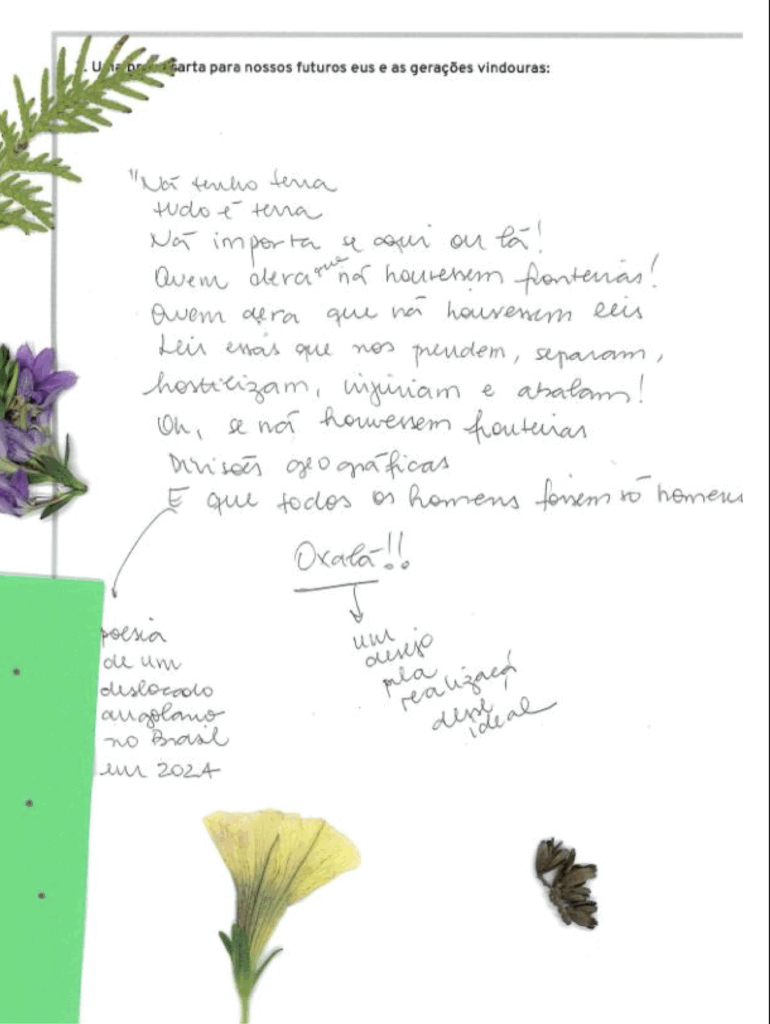 Uma [...] carta para nossos futuros eus e as gerações vindouras:
"Nã tenho terra
tudo é terra
Nã importa se aqui ou lá!
Quem dera que nã houvessem fronteiras!
Quem dera que nã houvessem leis
Leis essas que nos prendem, separam,
hostilizam, injuriam e abalam!
Oh, se nã houvessem fronteiras
Divisões geográficas
E que todos os homens fossem só homens
Oxalá!!
poesia
de um
deslocado
angolano
no Brasil
em 2024
um
desejo
pela
realizaçã
desse
ideal